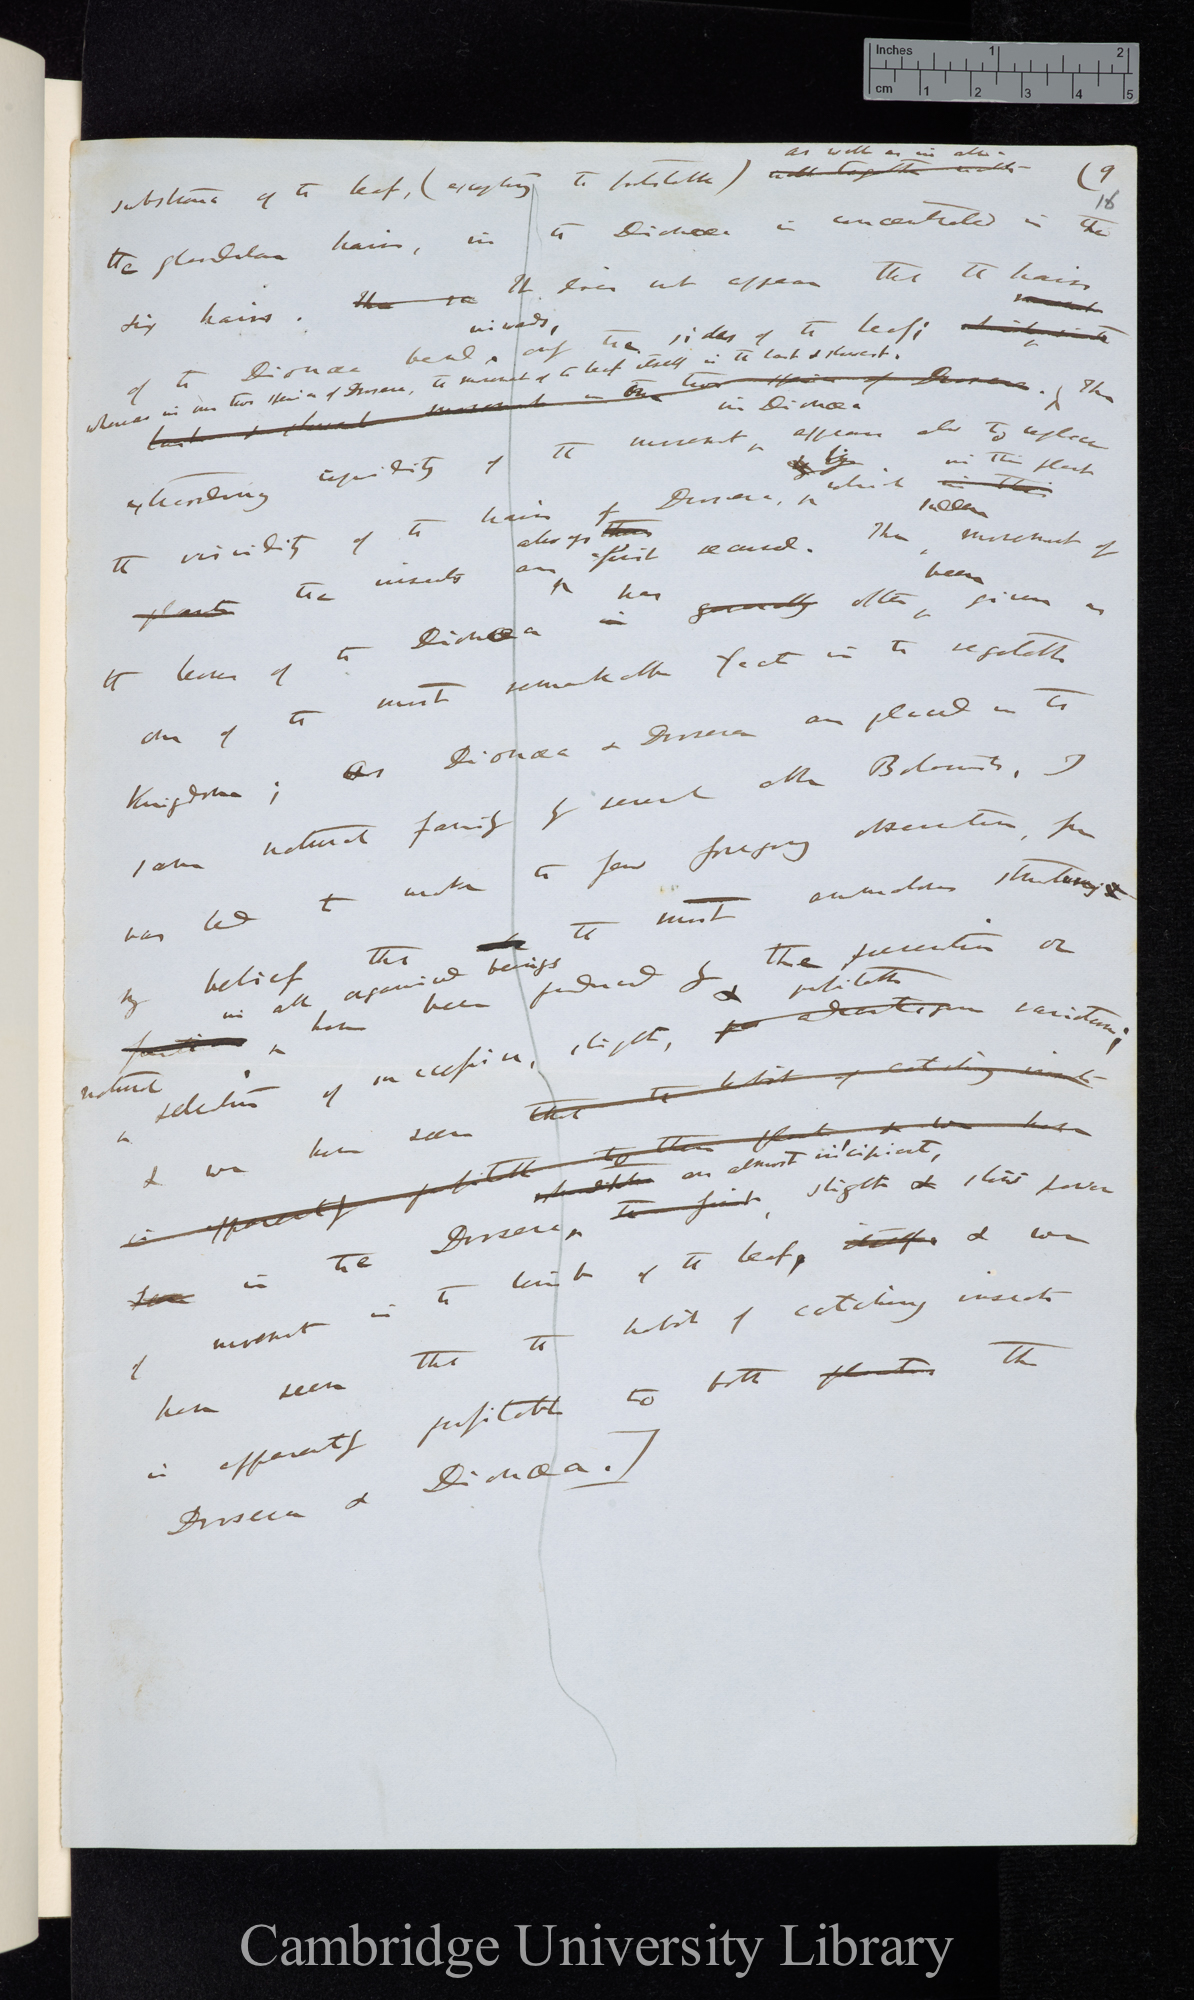 Inches 1 2
cm 1 2 3 4 5
(9
18
as well as in all
substance of the leaf, (excepting the footstalk)
the glandular hairs, in the Dionæa is concentrated in the
six hairs. It does not appear that the hairs
inwards,
of the Dionæa bend, only the sides of the leaf;
whereas in our two species of Drosera, the movement of the leaf itself is the last & slowest.
last & slowest movement in the two species of Drosera. The
in Dionæa
extraordinary rapidity of the movement, appears also to replace
by in this plant
the viscidity of the hairs of Drosera, which in this
always sudden
plants the insects are first secured. The movement of
been
the leaves of the Dionæa is has generally often given as
one of the most remarkable facts in the vegetable
Kingdom; As Dionæa & Drosera are placed in the
same natural family by several able Botanists, I
was led to make the few foregoing observations, for
my belief that the most anomalous structures
in all organised beings
have been produced by the preservation or
natural & profitable
selection of successive, slight, advantageous variations;
& we have seen that the habit of catching insects
is apparently profitable to these plants & we have
an almost incipient,
seen in the Drosera, the first, slight & slow power
of movement in the limb of the leaf, itself, & we
have seen that the habit of catching insects
is apparently profitable to both plants the
Drosera & Dionæa.]
Cambridge University Library